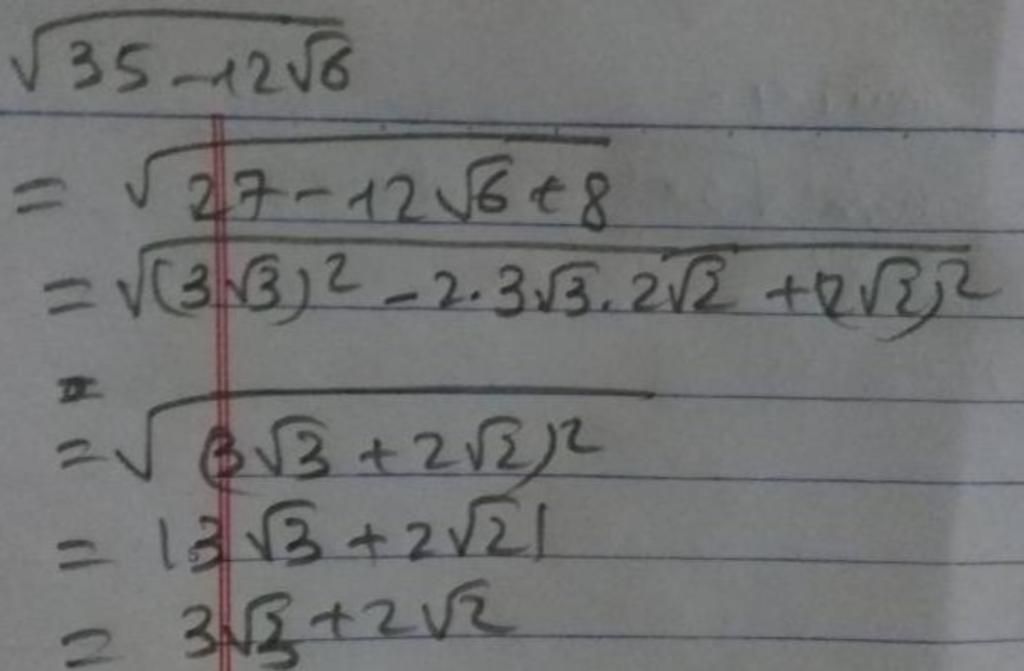 √(35 - 12√6)
= √(27 - 12√6 + 8)
= √((3√3)² - 2·3√3·2√2 + (2√2)²)
=
= √((3√3 + 2√2)²)
= |3√3 + 2√2|
= 3√3 + 2√2